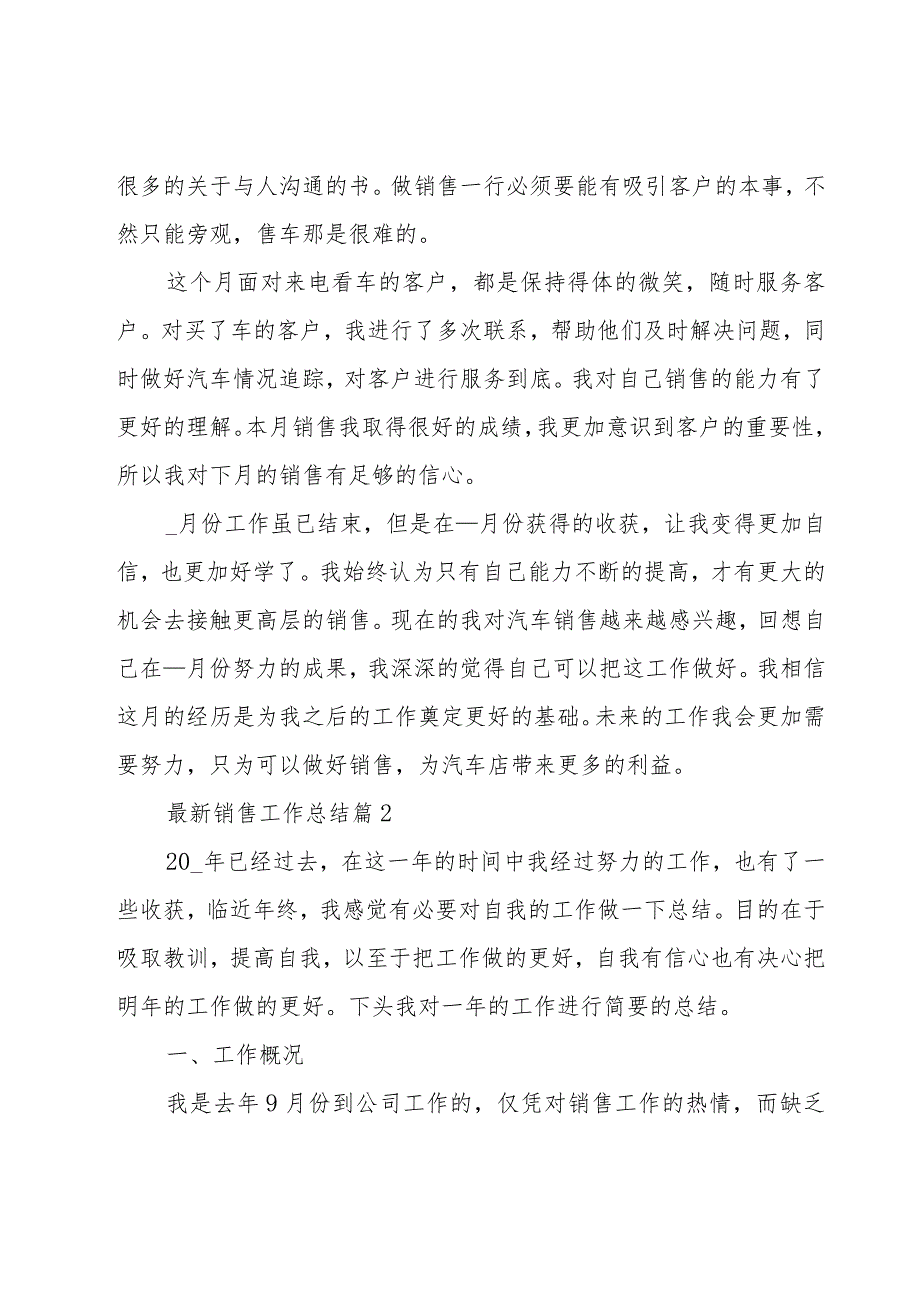 很多的关于与人沟通的书。做销售一行必须要能有吸引客户的本事，不
然只能旁观，售车那是很难的。
这个月面对来电看车的客户，都是保持得体的微笑，随时服务客
户。对买了车的客户，我进行了多次联系，帮助他们及时解决问题，同
时做好汽车情况追踪，对客户进行服务到底。我对自己销售的能力有了
更好的理解。本月销售我取得很好的成绩，我更加意识到客户的重要性，
所以我对下月的销售有足够的信心。
_月份工作虽已结束，但是在—月份获得的收获，让我变得更加自
信，也更加好学了。我始终认为只有自己能力不断的提高，才有更大的
机会去接触更高层的销售。现在的我对汽车销售越来越感兴趣，回想自
己在—月份努力的成果，我深深的觉得自己可以把这工作做好。我相信
这月的经历是为我之后的工作奠定更好的基础。未来的工作我会更加需
要努力，只为可以做好销售，为汽车店带来更多的利益。
最新销售工作总结篇2
20_年已经过去，在这一年的时间中我经过努力的工作，也有了一
些收获，临近年终，我感觉有必要对自我的工作做一下总结。目的在于
吸取教训，提高自我，以至于把工作做的更好，自我有信心也有决心把
明年的工作做的更好。下头我对一年的工作进行简要的总结。
一、工作概况
我是去年9月份到公司工作的，仅凭对销售工作的热情，而缺乏